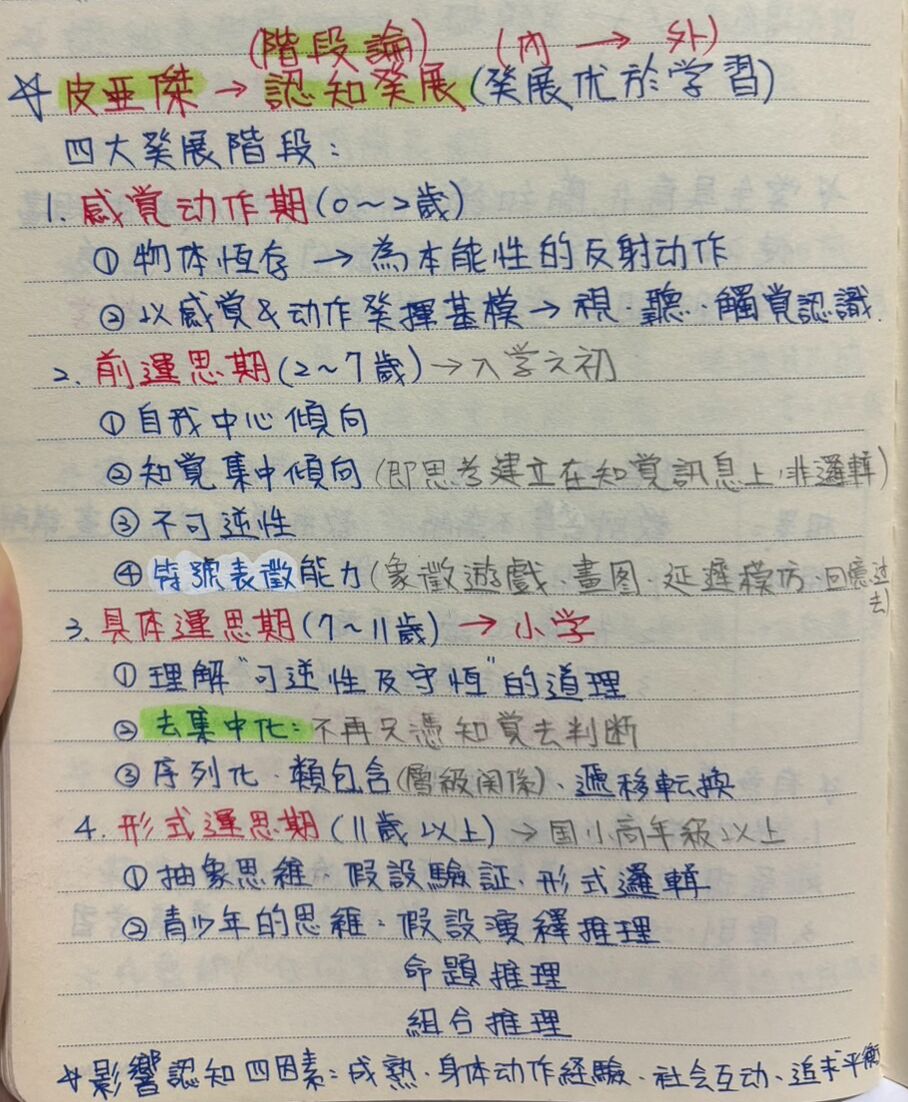 (階段論) (內 → 外)
☆ 皮亞傑 → 認知發展 (發展优於学習)
四大發展階段:
1. 感覚动作期 (0~2歲)
① 物体恆存 → 為本能性的反射动作
② 以感覚&动作發揮基模 → 視、聽、觸覚認識.
2. 前運思期 (2~7歲) → 入学之初
① 自我中心傾向
② 知覚集中傾向 (即思考建立在知覚訊息上,非邏輯)
③ 不可逆性
④ 符號表徵能力 (象徵遊戲、畫图、延遲模仿、回憶过去)
3. 具体運思期 (7~11歲) → 小学
① 理解"可逆性及守恆"的道理
② 去集中化: 不再只憑知覚去判断
③ 序列化、類包含(層級関係)、遞移転換
4. 形式運思期 (11歲以上) → 国小高年級以上
① 抽象思維、假設驗証、形式邏輯
② 青少年的思維: 假設演繹推理
命題推理
組合推理
☆影響認知四因素: 成熟、身体动作経驗、社会互动、追求平衡